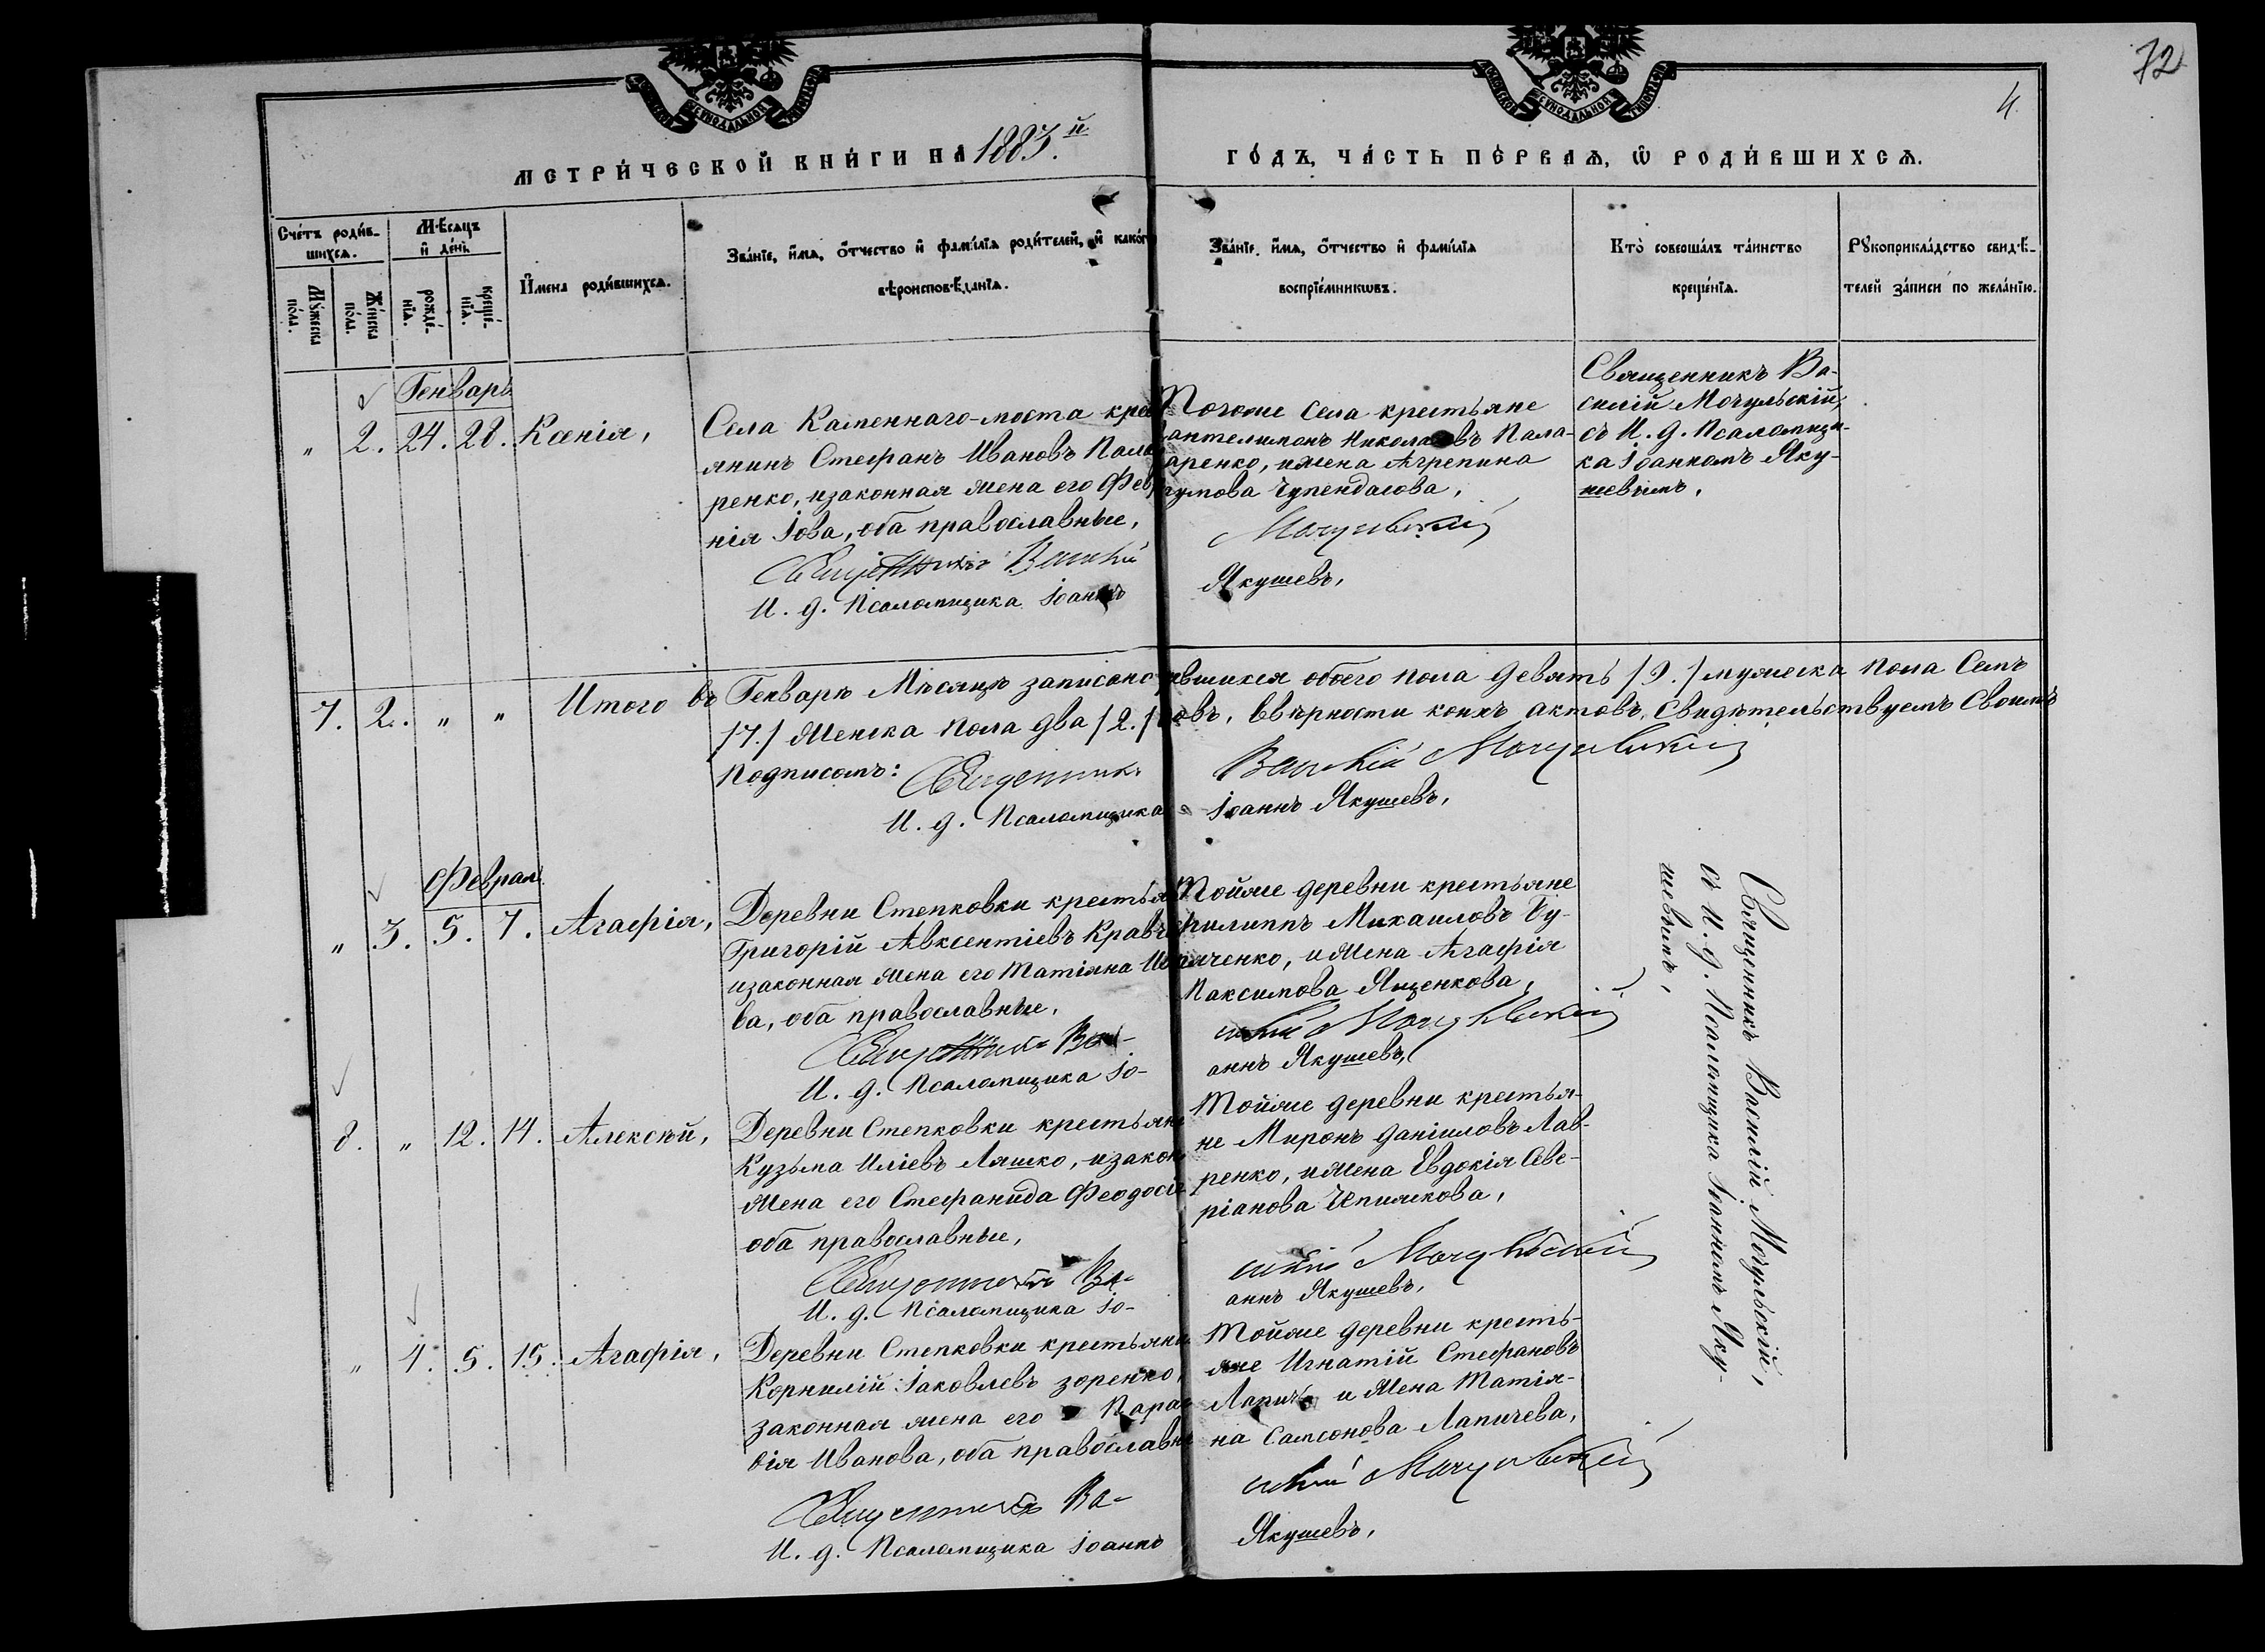 72
4
МЕТРИЧЕСКОЙ КНИГИ НА 1883.й
ГОДЪ, ЧАСТЬ ПЕРВАЯ, Ѡ РОДИВШИХСЯ.
Счетъ родив-
шихся.
Мужеска пола.
Женска пола.
Мѣсяцъ и день.
рождѣ-
нія.
креще-
нія.
Имена родившихся.
Званіе, имя, отчество и фамилія родителей, и какого
вѣроисповѣданія.
Званіе, имя, отчество и фамилія
воспріемниковъ.
Кто совершалъ таинство
крещенія.
Рукоприкладство свидѣ-
телей записи по желанію.
Генварь
" 2. 24. 28. Ксенія,
Села Каменнаго-моста кре
янинъ Стефанъ Ивановъ Пала
ренко, изаконная жена его Фев
нія Іова, оба православные,
Священникъ Василій
И. д. Псаломщика Іоаннъ
Тогоже села крестьяне
антелимонъ Николаевъ Пала-
аренко, ижена Агрепина
Мочульскій
Якушевъ,
Священникъ Ва-
силій Мочульскій,
съ И. д. Псаломщи-
ка Іоанномъ Яку-
шевымъ,
7. 2. " " Итого въ Генварѣ Мѣсяцѣ записано вшихся обоего пола девять /9./ мужеска пола Семь
/7./ Женска пола два /2./ овъ, Ввѣрности коихъ актовъ, Свидѣтельствуемъ Своимъ
подписомъ: Священникъ Василій Мочульскій
И. д. Псаломщика Іоаннъ Якушевъ,
Феврал
" 3. 5. 7. Агафія,
Деревни Степковки крестья
Григорій Авксентіевъ Кравч
изаконная жена его Татіана
ва, оба православные,
Священникъ Ва-
И. д. Псаломщика Іо-
Тойже деревни крестьяне
Филиппъ Михаиловъ
ченко, ижена Агафія
Максимова Ященкова,
силій Мочульскій
аннъ Якушевъ,
8. " 12. 14. Алексѣй,
Деревни Степковки крестьян
Кузьма Иліевъ Ляшко, изакон
жена его Стефанида Феодосі
оба православные,
Священникъ Ва-
И. д. Псаломщика Іо-
Тойже деревни крестья-
не Миронъ Даніиловъ Лав-
ренко, ижена Евдокія Севе-
ріанова Чепижкова,
силій Мочульскій
аннъ Якушевъ,
" 4. 5. 15. Агафія,
Деревни Степковки крестьяни
Корнилій Іаковлевъ Зоренко,
законная жена его Парас
вія Иванова, оба православн
Священникъ Ва-
И. д. Псаломщика Іоаннъ
Тойже деревни кресть-
яне Игнатій Стефановъ
Лапичъ и жена Татія-
на Самсонова Лапичева,
силій Мочульскій
Якушевъ,
Священникъ Василій Мочульскій,
съ И. д. Псаломщика Іоанномъ Яку-
шевымъ,